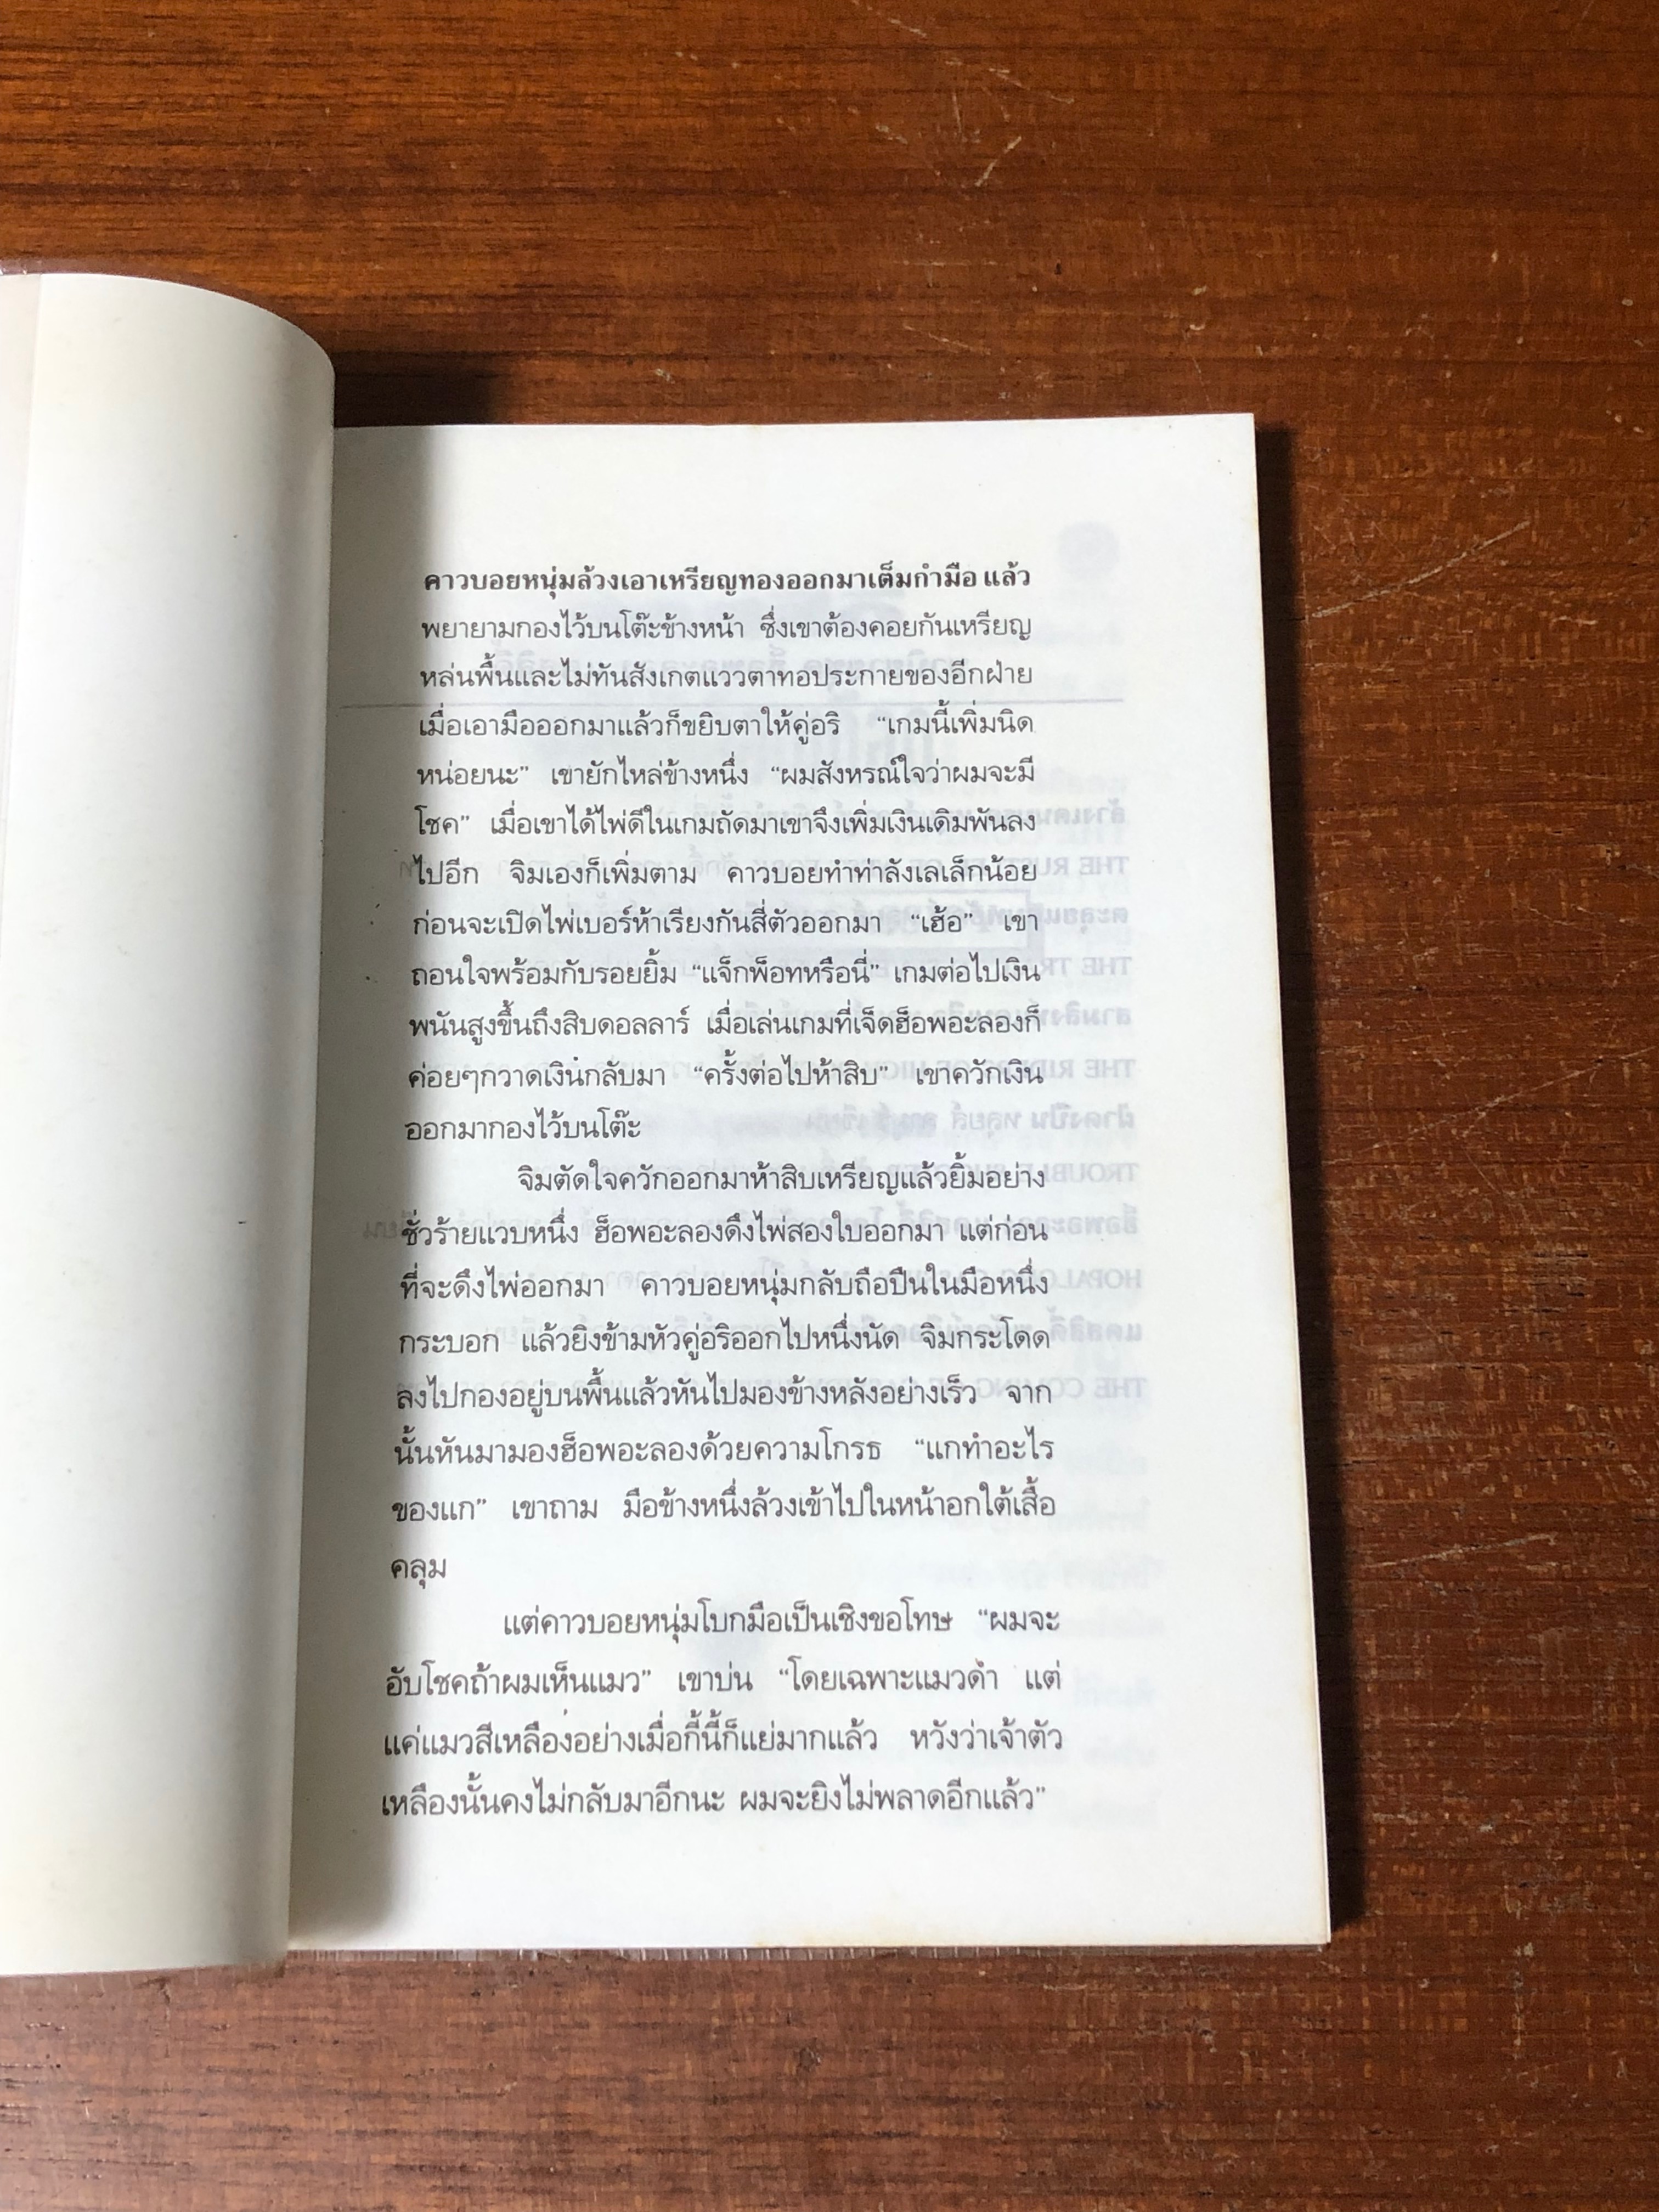 คาวบอยหนุ่มล้วงเอาเหรียญทองออกมาเต็มกำมือ แล้ว
พยายามกองไว้บนโต๊ะข้างหน้า ซึ่งเขาต้องคอยกันเหรียญ
หล่นพื้นและไม่ทันสังเกตแววตาทอประกายของอีกฝ่าย
เมื่อเอามือออกมาแล้วก็ขยิบตาให้คู่อริ “เกมนี้เพิ่มนิด
หน่อยนะ” เขายักไหล่ข้างหนึ่ง “ผมสังหรณ์ใจว่าผมจะมี
โชค” เมื่อเขาได้ไพ่ดีในเกมถัดมาเขาจึงเพิ่มเงินเดิมพันลง
ไปอีก จิมเองก็เพิ่มตาม คาวบอยทำท่าลังเลเล็กน้อย
ก่อนจะเปิดไพ่เบอร์ห้าเรียงกันสี่ตัวออกมา “เฮ้อ” เขา
ถอนใจพร้อมกับรอยยิ้ม “แจ็กพ็อทหรือนี่” เกมต่อไปเงิน
พนันสูงขึ้นถึงสิบดอลลาร์ เมื่อเล่นเกมที่เจ็ดฮ็อพอะลองก็
ค่อยๆกวาดเงินกลับมา “ครั้งต่อไปห้าสิบ” เขาควักเงิน
ออกมากองไว้บนโต๊ะ
จิมตัดใจควักออกมาห้าสิบเหรียญแล้วยิ้มอย่าง
ชั่วร้ายแวบหนึ่ง ฮ็อพอะลองดึงไพ่สองใบออกมา แต่ก่อน
ที่จะดึงไพ่ออกมา คาวบอยหนุ่มกลับถือปืนในมือหนึ่ง
กระบอก แล้วยิงข้ามหัวคู่อริออกไปหนึ่งนัด จิมกระโดด
ลงไปกองอยู่บนพื้นแล้วหันไปมองข้างหลังอย่างเร็ว จาก
นั้นหันมามองฮ็อพอะลองด้วยความโกรธ “แกทำอะไร
ของแก” เขาถาม มือข้างหนึ่งล้วงเข้าไปในหน้าอกใต้เสื้อ
คลุม
แต่คาวบอยหนุ่มโบกมือเป็นเชิงขอโทษ “ผมจะ
อับโชคถ้าผมเห็นแมว” เขาบ่น “โดยเฉพาะแมวดำ แต่
แค่แมวสีเหลืองอย่างเมื่อกี้นี้ก็แย่มากแล้ว หวังว่าเจ้าตัว
เหลืองนั้นคงไม่กลับมาอีกนะ ผมจะยิงไม่พลาดอีกแล้ว”